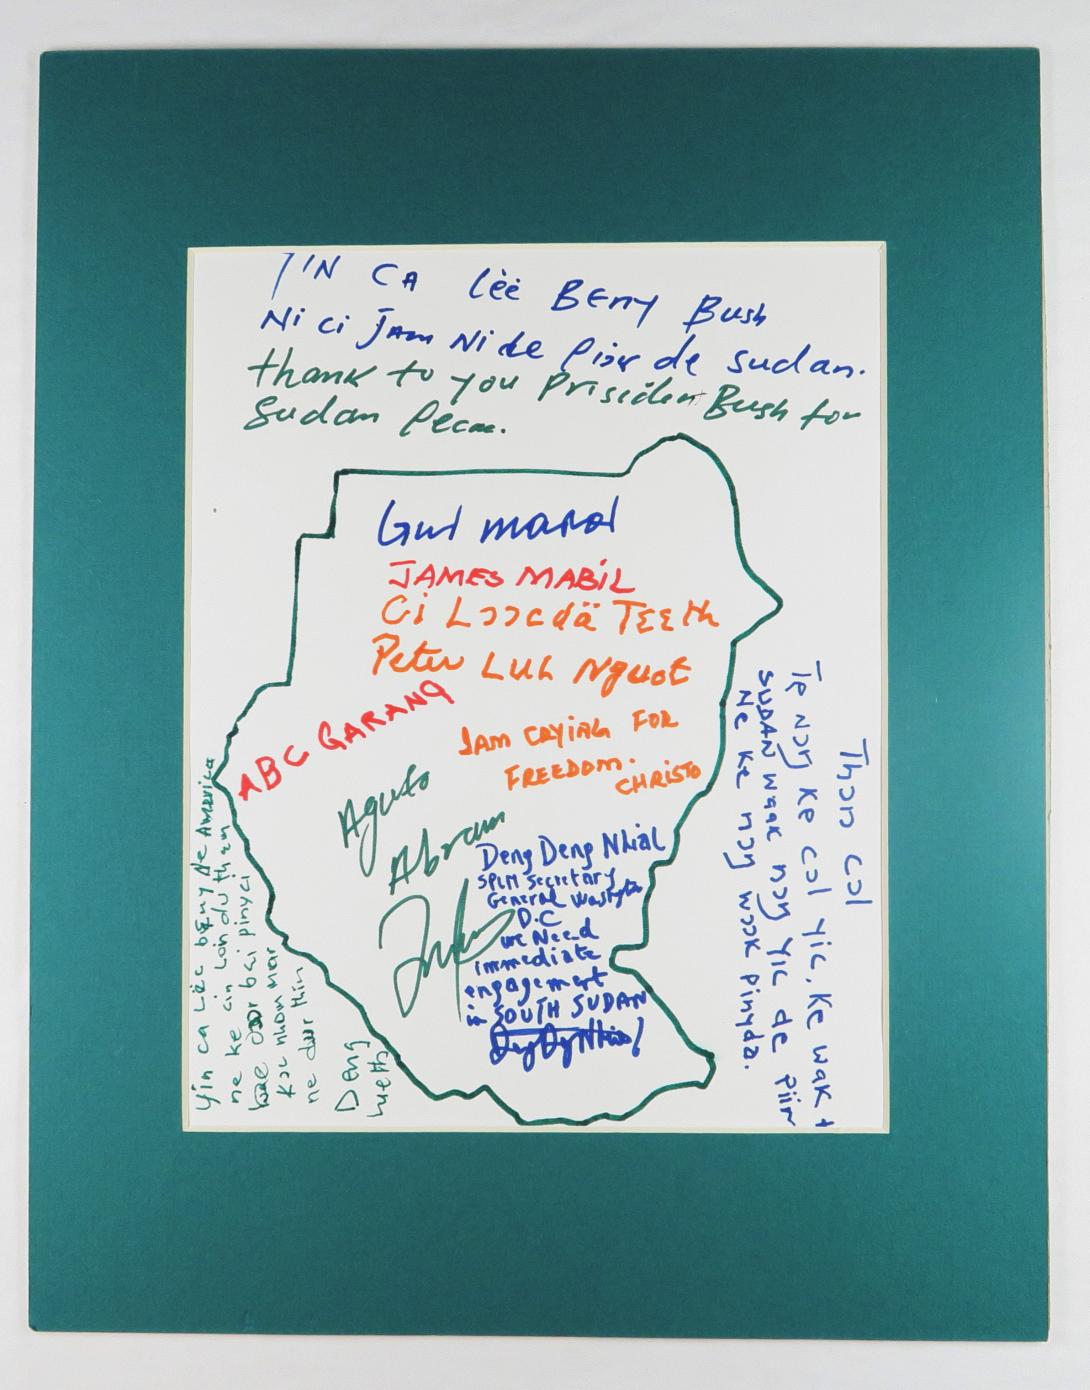 YIN CA lëë BEny Bush
Ni ci Jam Ni de Piɔr de Sudan.
thank to you Prisiden Bush for
Sudan
JAMES MABIL
Ci Lɔɔcdä Tɛɛth
Peter LUL Nguot
ABC GARANG
IAM CRYING FOR
FREEDOM.
CHRISTO
Aguto
Abram
Deng Deng Nhial
SPLM Secretary
General
D.C
we Need
immediate
engagement
in SOUTH SUDAN
Yin ca Lëc bɛny Ne America
ne ke cin
bɛi pinyci
kɔc nhom mar
ne dɔɔr thin
Deng
Lueth
Thɔn Cɔl
Te nɔŋ Ke cɔl yic. Ke wak t
SUDAN waak nɔŋ Yic de Piir
Ne Ke nɔŋ wɔɔk pinyda.